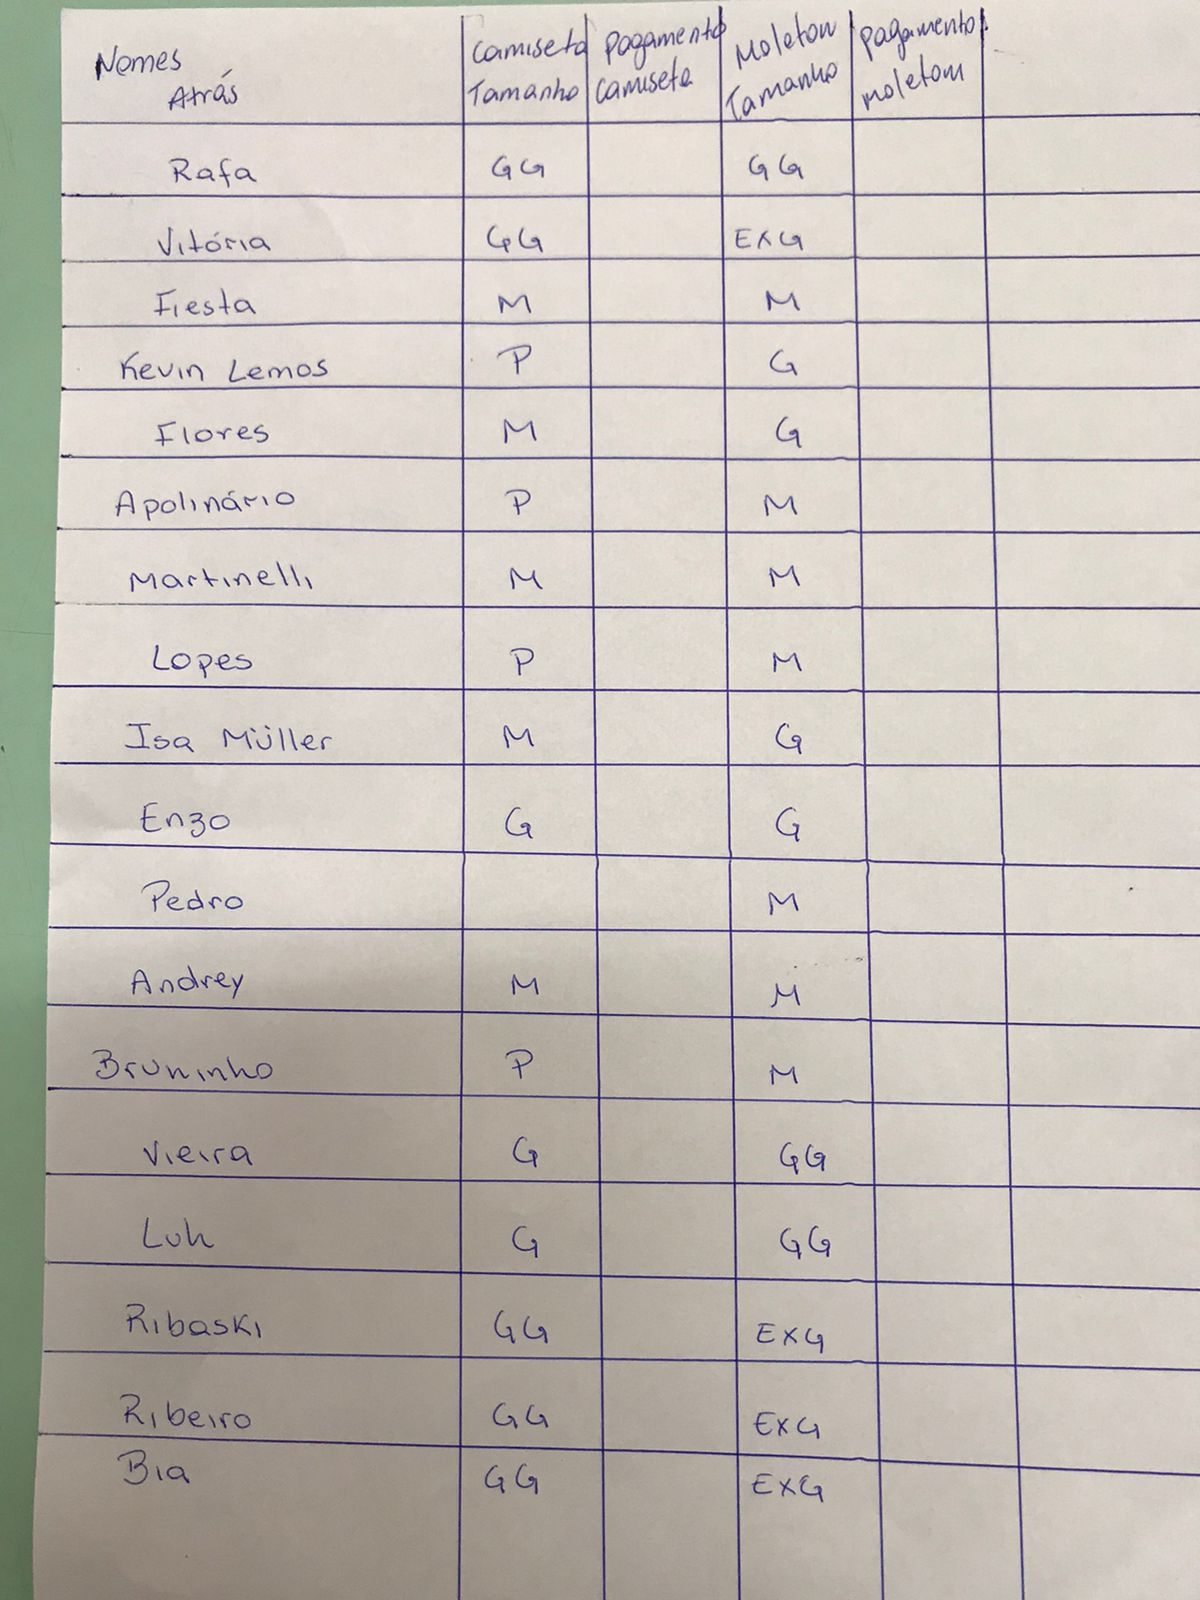 Nomes Atrás Camiseta Tamanho pagamento camiseta Moletom Tamanho pagamento moletom
Rafa GG GG
Vitória GG EXG
Fiesta M M
Kevin Lemos P G
Flores M G
Apolinário P M
Martinelli M M
Lopes P M
Isa Müller M G
Enzo G G
Pedro M
Andrey M M
Bruninho P M
Vieira G GG
Luh G GG
Ribaski GG EXG
Ribeiro GG EXG
Bia GG EXG